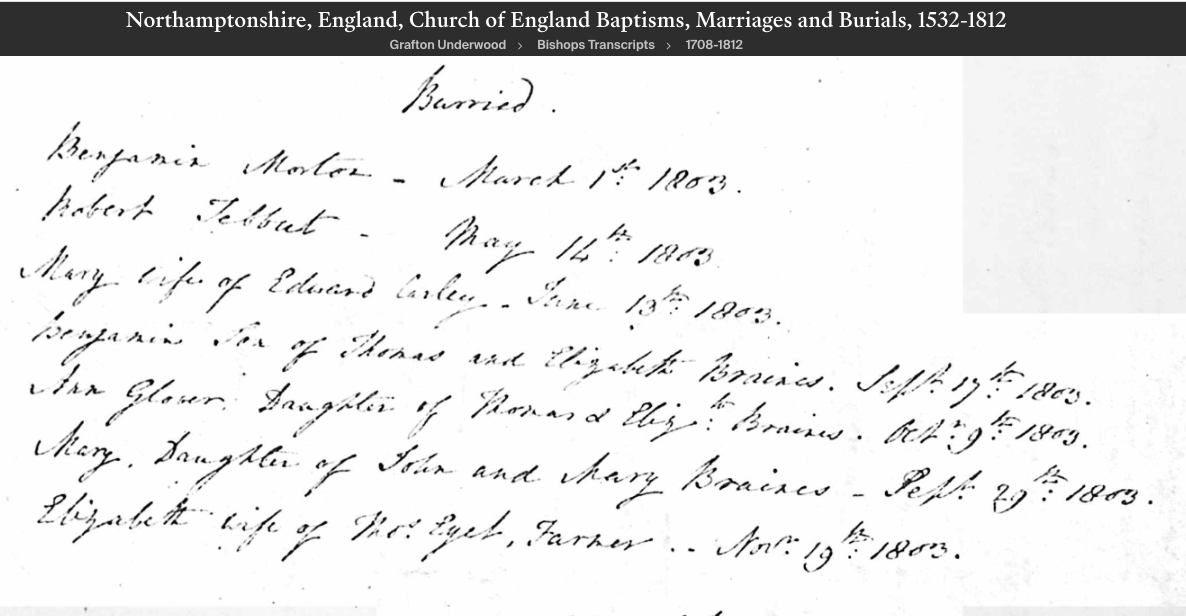 Northamptonshire, England, Church of England Baptisms, Marriages and Burials, 1532-1812
Grafton Underwood > Bishops Transcripts > 1708-1812
Burried.
Benjamin Morton - March 1st: 1803.
Robert Tebbut - May 14th: 1803.
Mary wife of Edward Carley - June 13th 1803.
Benjamin Son of Thomas and Elizabeth Braines. Sept. 17th: 1803.
Ann Glover. Daughter of Thomas & Eliz:th Braines. Octr: 9th: 1803.
Mary. Daughter of John and Mary Braines - Sept. 29th: 1803.
Elizabeth wife of Thos. Eyet, Farmer .. Novr. 19th: 1803.